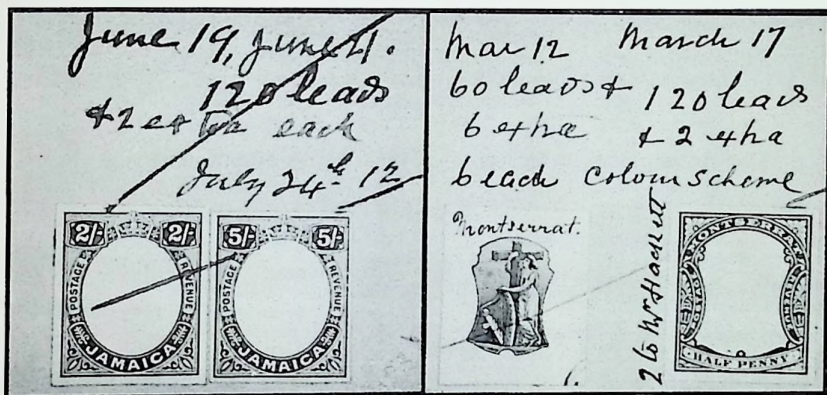 June 19, June 21.
120 leads
& 2 extra each
July 24th 12
2/- 2/-
POSTAGE REVENUE
JAMAICA
5/- 5/-
POSTAGE REVENUE
JAMAICA
Mar 12 March 17
60 leads & 120 leads
6 extra & 2 extra
6 each colour scheme
Montserrat.
2 to Mr Hackett
MONTSERRAT
HALF PENNY